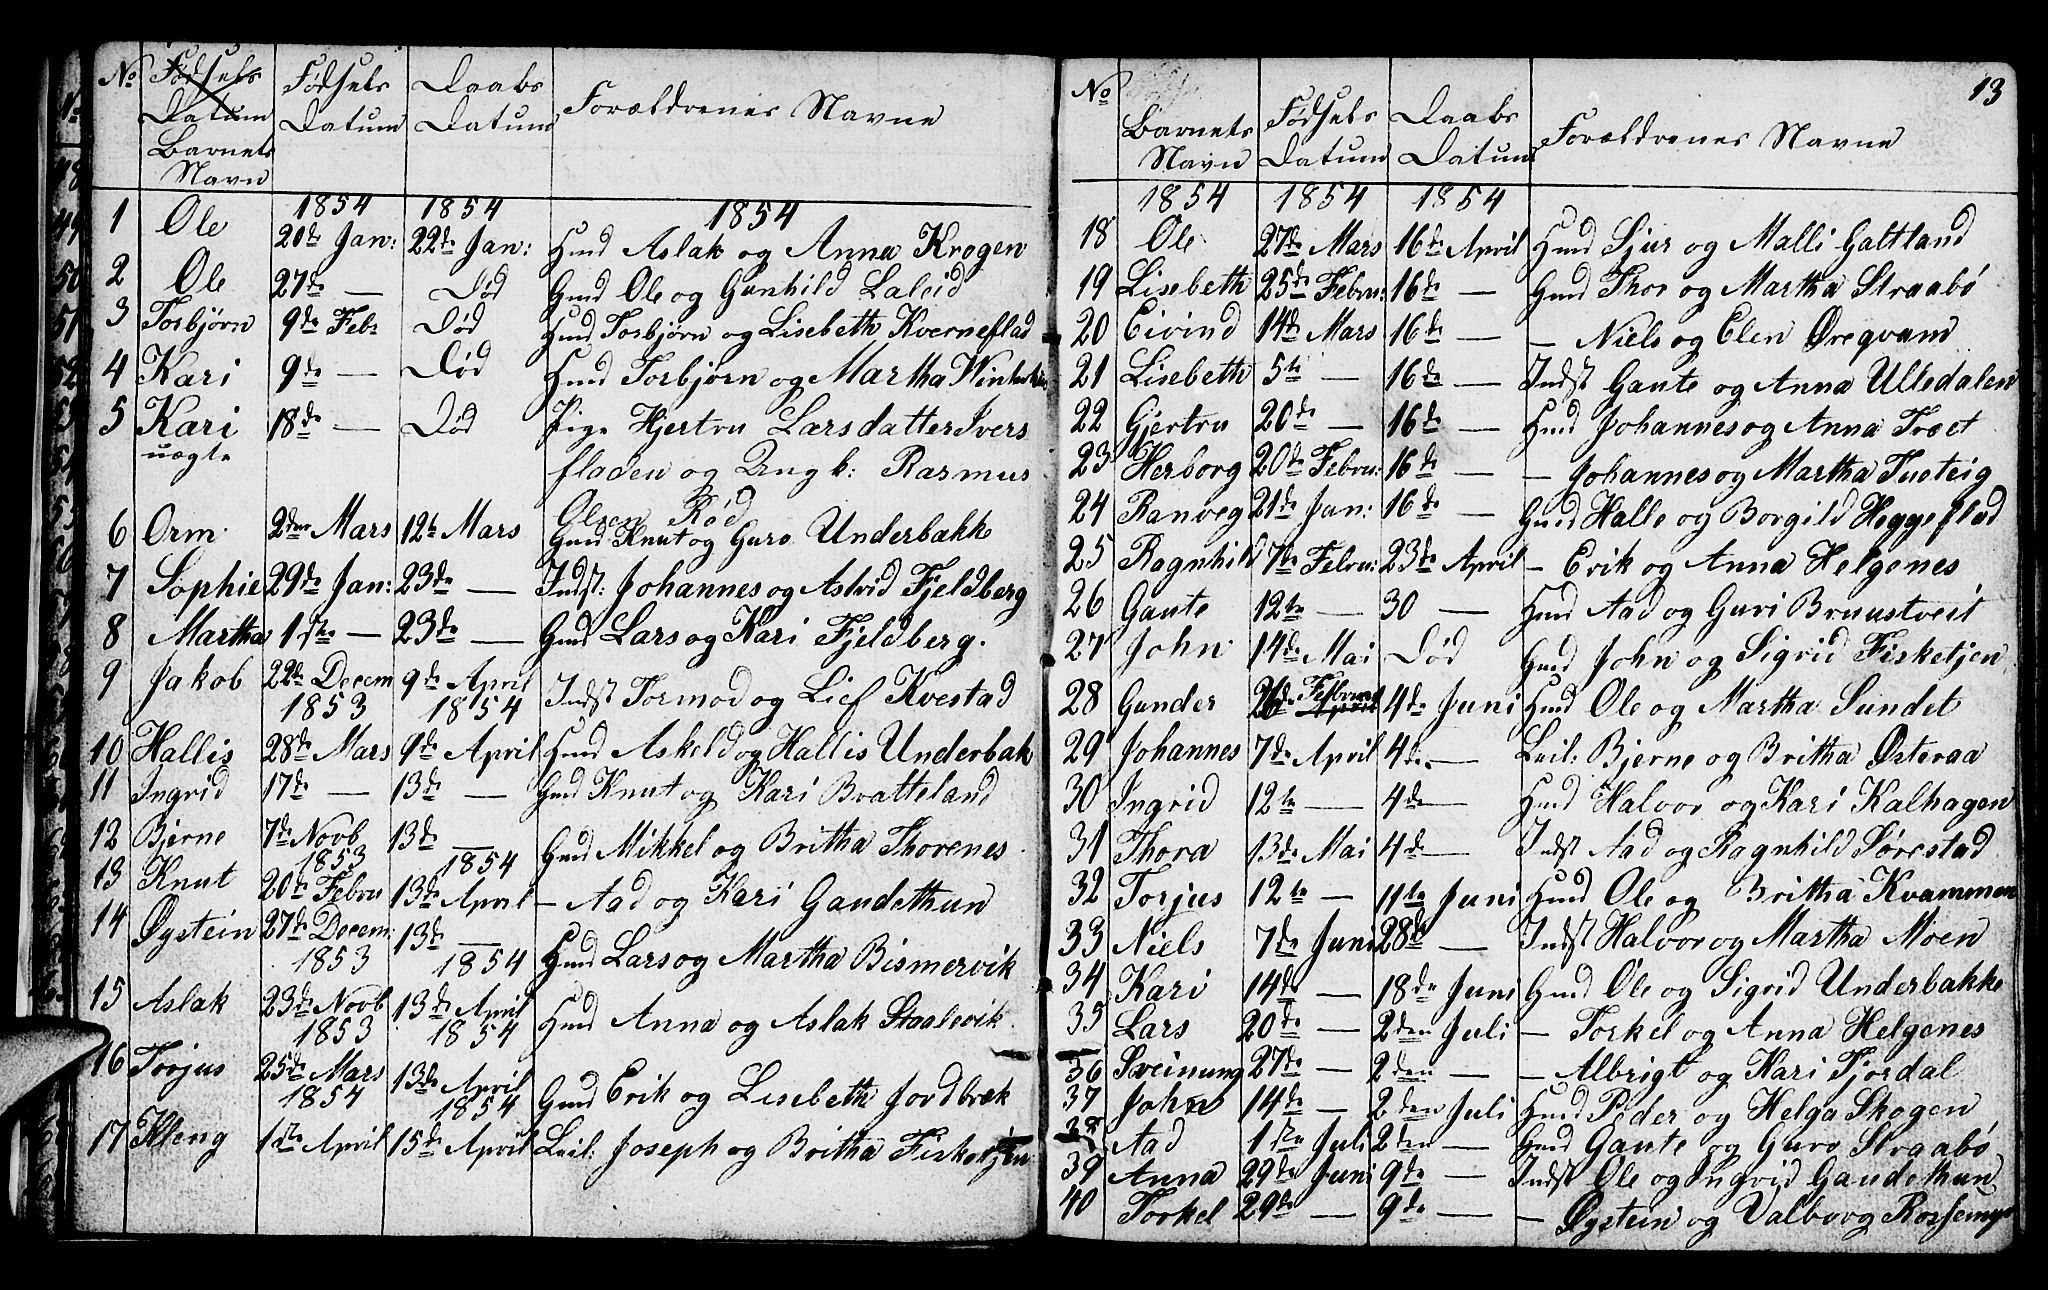 No Fødsels Datum Barnets Navn Fødsels Datum Daabs Datum Forældrenes Navne
1854 1854 1854
1 Ole 20de Jan: 22de Jan: Hmd Aslak og Anna Krogen
2 Ole 27de — Død Gmd Ole og Gunhild Laleid
3 Torbjørn 9de Feb: Død Hmd Torbjørn og Lisebeth Kverneflad
4 Kari 9de — Død Hmd Torbjørn og Martha
5 Kari 18de — Død Pige Hjertru Larsdatter Ivers
uægte fladen og Ungk: Rasmus
Olsen Rød
6 Orm 2den Mars 12te Mars Gmd Knut og Guro Underbakke
7 Sophie 29de Jan: 23de — Indst: Johannes og Astrid Fjeldberg
8 Martha 1ste — 23de — Gmd Lars og Kari Fjeldberg.
9 Jakob 22de Decem 9de April Indst Tormod og Lief Kvestad
1853 1854
10 Hallis 28de Mars 9de April Hmd Askeld og Hallis Underbak
11 Ingrid 17de — 13de — Gmd Knut og Kari Bratteland
12 Bjerne 7de Novb 13de — Gmd Mikkel og Britha Thorenes
1853 1854
13 Knut 20de Febru 13de April — Aad og Kari Gaudethun
14 Øystein 27de Decem: 13de — Hmd Lars og Martha Bismervik
1853 1854
15 Aslak 23de Novb 13de April Hmd Anna og Aslak Staalevik
1853 1854
16 Torjus 25de Mars 13de April Gmd Erik og Lisebeth Jordbræk
1854 1854
17 Kleng 1ste April 15de April Leil: Joseph og Britha Fisketjen
13
No Barnets Navn Fødsels Datum Daabs Datum Forældrenes Navne
1854 1854 1854
18 Ole 27de Mars 16de April Hmd Sjur og Malli Galtland
19 Lisebeth 25de Febru: 16de — Gmd Thor og Martha Straabø
20 Eivind 14de Mars 16de — — Niels og Elen Øreqvam
21 Lisebeth 5te — 16de — Indst Gaute og Anna Ulledalen
22 Gjertru 20de — 16de — Hmd Johannes og Anna Træet
23 Herborg 20de Febru: 16de — — Johannes og Martha Tueteig
24 Ranveg 21de Jan: 16de — Gmd Halle og Borgild Heggeflad
25 Ragnhild 7de Febru: 23de April — Erik og Anna Helgenes
26 Gaute 12te — 30 — Hmd Aad og Guri Bruustveit
27 John 14de Mai Død Gmd John og Sigrid Fisketjen
28 Gunder 26de Februar April 4de Juni Hmd Ole og Martha Sundet
29 Johannes 7de April 4de — Leil: Bjerne og Britha Østeraa
30 Ingrid 12te — 4de — Hmd Halvor og Kari Kalhagen
31 Thora 13de Mai 4de — Indst Aad og Ragnhild Sørestad
32 Torjus 12te — 11te Juni Hmd Ole og Britha Kvammen
33 Niels 7de Juni 28de — Indst Halvor og Martha Moen
34 Kari 14de — 18de Juni Gmd Ole og Sigrid Underbakke
35 Lars 20de — 2den Juli — Torkel og Anna Helgenes
36 Sveinung 27de — 2den — — Albrigt og Kari Fjordal
37 John 14de — 2den Juli Hmd Peder og Helga Skogen
38 Aad 1ste Juli 2den — Gmd Gaute og Guro Straabø
39 Anna 29de Juni 9de — Indst Ole og Ingrid Gaudethun
40 Torkel 29de — 9de — — Øystein og Valborg Rossemyr